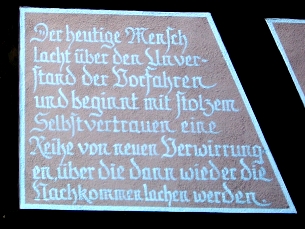 Der heutige Mensch
lacht über den Unver-
stand der Vorfahren
und beginnt mit stolzem
Selbstvertrauen eine
Reihe von neuen Verwirrung-
en, über die dann wieder die
Nachkommen lachen werden.